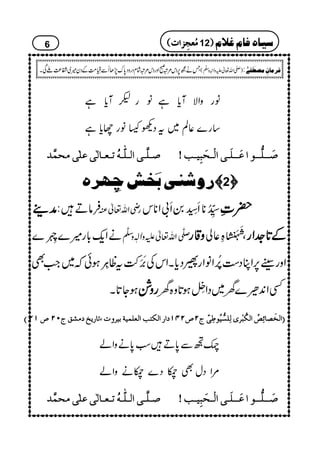 6 سیاہ فام غلام (12 مُعجِزات)
فرمانِ مصطفٰے (صلی اللہ تعالٰی علیہ واٰلہ وسلم) جس نے مجھ پر دس مرتبہ صبح اور دس مرتبہ شام درود پاک پڑھا اُسے قیامت کے دن میری شفاعت ملے گی۔
نور والا آیا ہے نور لیکر آیا ہے
سارے عالم میں یہ دیکھو کیسا نور چھایا ہے
صَلُّوا عَلَی الْحَبِیب ! صلَّی اللّٰہُ تعالٰی علٰی محمَّد
﴿2﴾ روشنی بَخش چِہرہ
حضرتِ سیِّدُنا اَسِید بن ابی اُناس رضی اللہ تعالٰی عنہ فرماتے ہیں: مدینے
کے تاجدار، شَہَنشاہِ عالی وقار صلَّی اللہ تعالٰی علیہ واٰلہٖ وسلَّم نے ایک بار میرے چہرے
اور سینے پر اپنا دستِ پُر انوار پھیر دیا۔ اس کی بَرَکت یہ ظاہر ہوئی کہ میں جب بھی
کسی اندھیرے گھر میں داخل ہوتا وہ گھر روشن ہو جاتا۔
(اَلْخَصائِصُ الْکُبْرٰی لِلسُّیُوطِیّ ج۲ ص۱۴۲ دار الکتب العلمیة بیروت، تاریخ دمشق ج۲۰ ص۲۱)
چمک تجھ سے پاتے ہیں سب پانے والے
مرا دل بھی چمکا دے چمکانے والے
صَلُّوا عَلَی الْحَبِیب ! صلَّی اللّٰہُ تعالٰی علٰی محمَّد